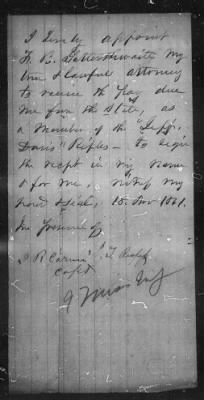 I hereby appoint
F. B. Satterthwaite my
true & lawful attorney
to receive the pay due
me from the State, as
a member of the "Jeff.
Davis" Rifles - to sign
the recpt in my name
& for me, witness my
hand & seal, 18 Nov 1861.
In presence of
J. R.
Capt
9 Miss